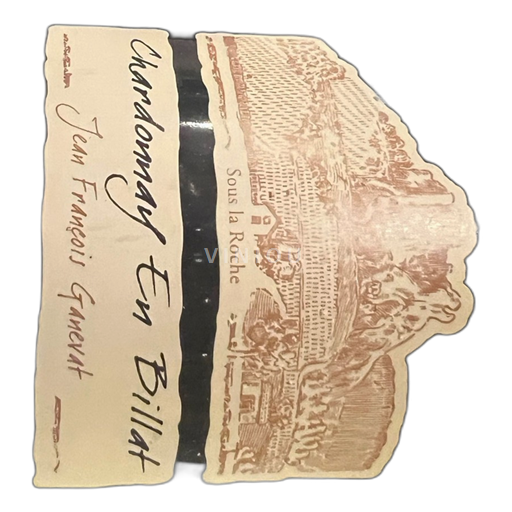 Sous la Roche
Chardonnay En Billat
Jean François Ganevat